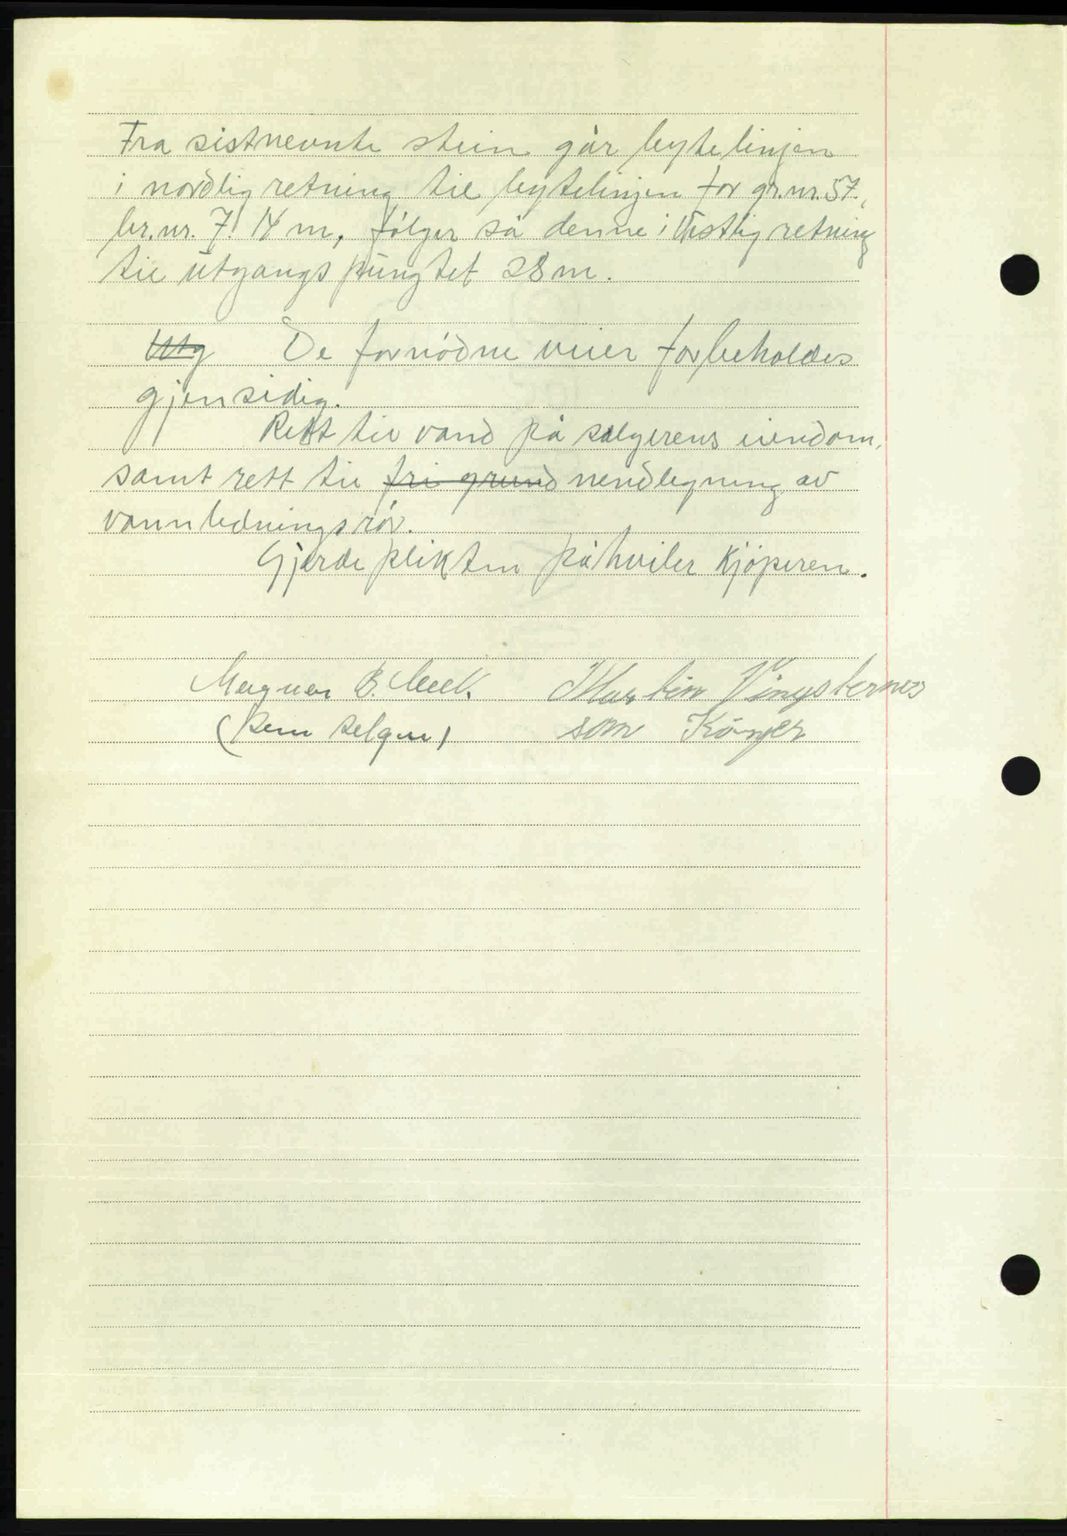 Fra sistnevnte stein går bytelinjen
i nordlig retning til bytelinjen for gr.nr. 57.,
br.nr. 7! 14 m, følger så denne i Vestlig retning
til utgangspungtet 28 m.
Utg De fornödne veier forbeholdes
gjensidig.
Rett til vand på selgerens eiendom,
samt rett til fri grund nendlegning av
vannledningsrör.
Gjerdeplikten påhviler Kjöperen.
Magnar B. Martin Vingsternes
(som selger) som Köper